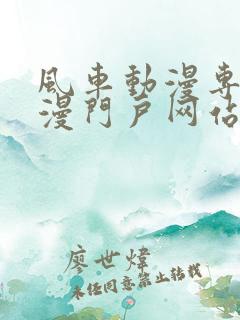 風車動漫專
漫門戶网站
廖世煒
未经同意禁止转载